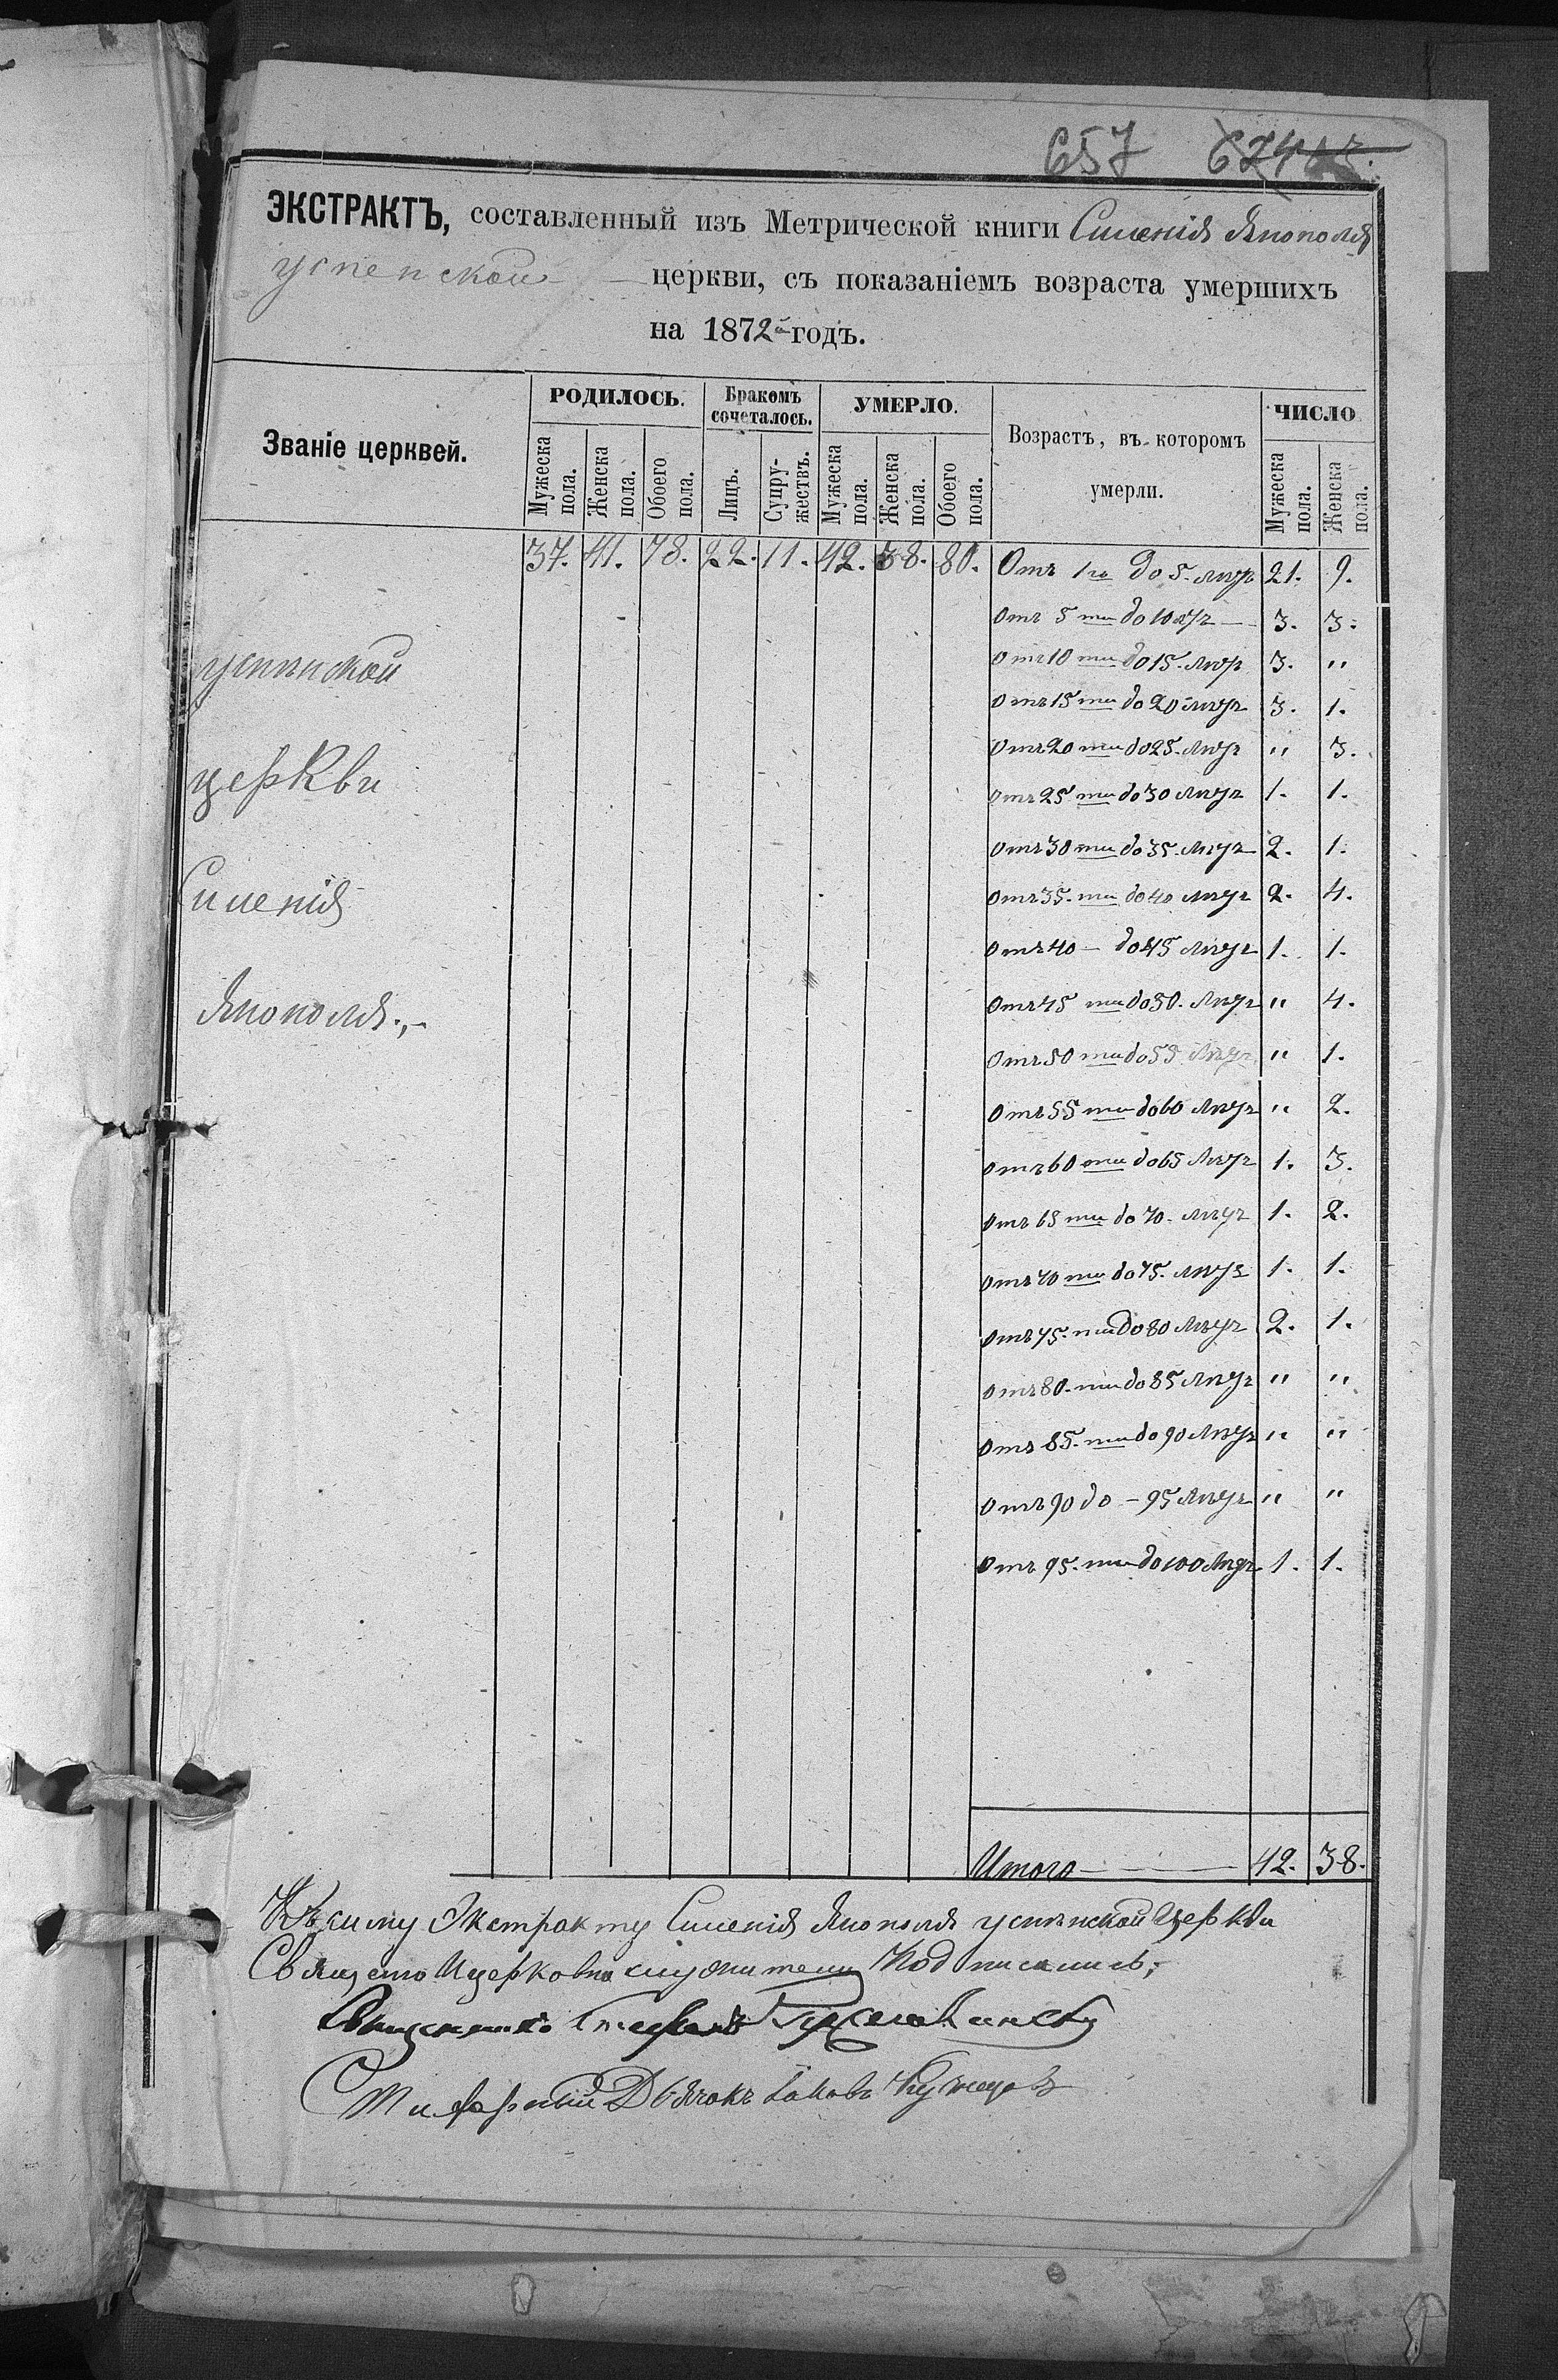 657 624
ЭКСТРАКТЪ, составленный изъ Метрической книги Силенія Янополя
успенской церкви, съ показаніемъ возраста умершихъ
на 1872й годъ.
Званіе церквей.
РОДИЛОСЬ.
Бракомъ сочеталось.
УМЕРЛО.
Возрастъ, въ которомъ умерли.
ЧИСЛО
Мужеска пола. Женска пола. Обоего пола. Лицъ. Супружествъ. Мужеска пола. Женска пола. Обоего пола. Мужеска пола. Женска пола.
37. 41. 78. 22. 11. 42. 38. 80. Отъ 1го до 5. лѣтъ 21. 9.
отъ 5 ти до 10 лѣтъ 3. 3.
успѣнской
отъ 10 ти до 15. лѣтъ 3. "
отъ 15 ти до 20 лѣтъ 3. 1.
отъ 20 ти до 25. лѣтъ " 3.
церкви
отъ 25 ти до 30 лѣтъ 1. 1.
отъ 30 ти до 35. лѣтъ 2. 1.
Силенія
отъ 35. ти до 40 лѣтъ 2. 4.
отъ 40 – до 45 лѣтъ 1. 1.
Янополя.,-
отъ 45 ти до 50. лѣтъ " 4.
отъ 50 ти до 55 лѣтъ " 1.
отъ 55 ти до 60 лѣтъ " 2.
отъ 60 ти до 65 лѣтъ 1. 3.
отъ 65 ти до 70. лѣтъ 1. 2.
отъ 70 ти до 75. лѣтъ 1. 1.
отъ 75. ти до 80 лѣтъ 2. 1.
отъ 80. ти до 85 лѣтъ " "
отъ 85. ти до 90 лѣтъ " "
отъ 90 до – 95 лѣтъ " "
отъ 95. ти до 100 лѣтъ 1. 1.
Итого 42. 38.
Къ сему Экстракту Силенія Янополя успѣнской Церкви
Священо Ицерковно служители Подписались;
Священникъ Стефанъ
Стихарный Дьячокъ Іаковъ